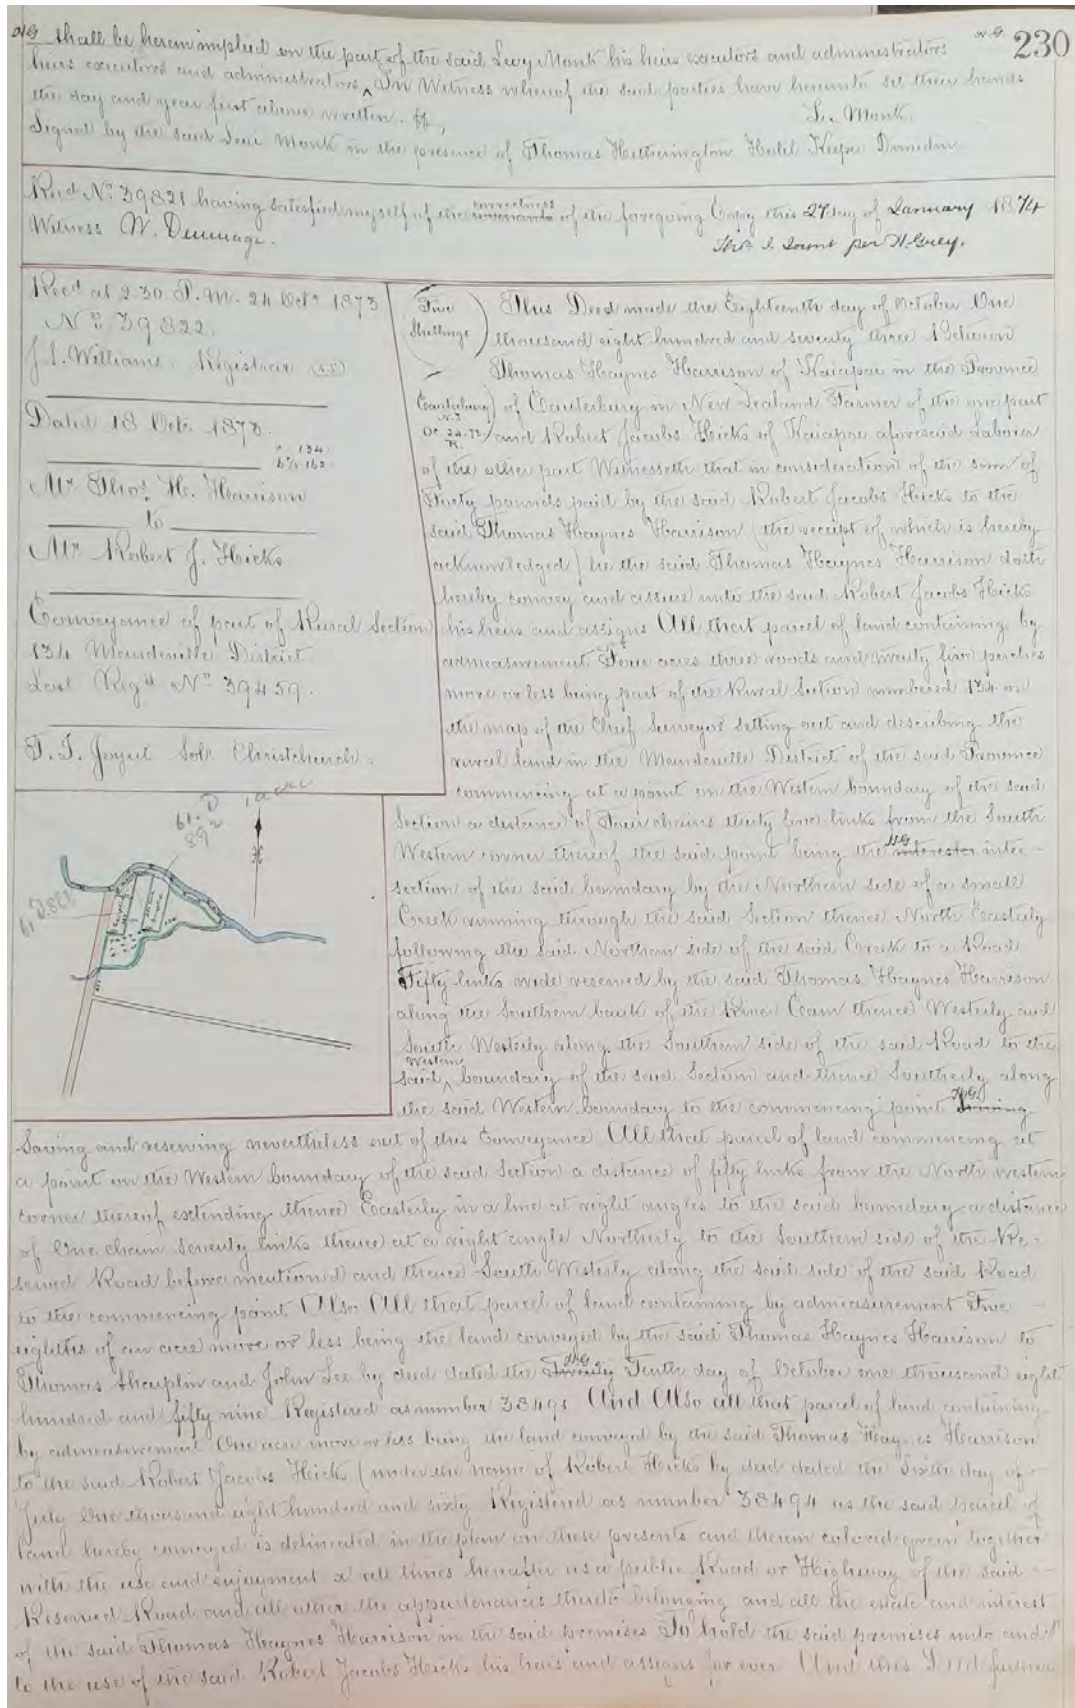 H.G. shall be herein implied on the part of the said Levy Monk his heirs executors and administrators
H.G. 230
heirs executors and administrators ^ In Witness whereof the said parties have hereunto set their hands
the day and year first above written.
L. Monk.
Signed by the said Levi Monk in the presence of Thomas Hetherington Hotel Keeper Dunedin
Recd No 39821 having satisfied myself of the correctness of the foregoing Copy this 27 day of January 1874
Witness W.
per H. Grey.
Recd at 2.30 P.M. 24 Octr 1873
No 39822.
J.S. Williams. Registrar (L.S.)
Dated 18 Octr. 1873.
Mr Thos H. Harrison
to
Mr Robert J. Hicks
Conveyance of part of Rural Section
134 Mandeville District
Last Regd No 39459.
Solr Christchurch.
Five Shillings
Canterbury
N.Z.
Oc 24.73
R.
This Deed made the Eighteenth day of October One
thousand eight hundred and seventy three Between
Thomas Haynes Harrison of Kaiapoi in the Province
of Canterbury in New Zealand Farmer of the one part
and Robert Jacobs Hicks of Kaiapoi aforesaid Laborer
of the other part Witnesseth that in consideration of the sum of
pounds paid by the said Robert Jacobs Hicks to the
said Thomas Haynes Harrison (the receipt of which is hereby
acknowledged) he the said Thomas Haynes Harrison doth
hereby convey and assure unto the said Robert Jacobs Hicks
his heirs and assigns All that parcel of land containing by
admeasurement Four acres three roods and twenty five perches
more or less being part of the Rural Section numbered 134 on
the map of the Chief Surveyor setting out and describing the
rural land in the Mandeville District of the said Province
commencing at a point on the Western boundary of the said
Section a distance of Four chains thirty five links from the South
Western corner thereof the said point being the inter-
section of the said boundary by the Northern side of a small
Creek running through the said Section thence North Easterly
following the said Northern side of the said Creek to a Road
Fifty links wide reserved by the said Thomas Haynes Harrison
along the Southern bank of the River Cam thence Westerly and
South Westerly along the Southern side of the said Road to the
said Western boundary of the said Section and thence Southerly along
the said Western boundary to the commencing point
Saving and reserving nevertheless out of this Conveyance All that parcel of land commencing at
a point on the Western boundary of the said Section a distance of fifty links from the North western
corner thereof extending thence Easterly in a line at right angles to the said boundary a distance
of One chain Seventy links thence at a right angle Northerly to the Southern side of the Re-
served Road before mentioned and thence South Westerly along the said side of the said Road
to the commencing point Also All that parcel of land containing by admeasurement Five
eighths of an acre more or less being the land conveyed by the said Thomas Haynes Harrison to
Thomas and John Lee by deed dated the Tenth day of October one thousand eight
hundred and fifty nine Registered as number And Also all that parcel of land containing
by admeasurement One acre more or less being the land conveyed by the said Thomas Haynes Harrison
to the said Robert Jacobs Hicks (under the name of Robert Hicks by deed dated the Sixth day of
July One thousand eight hundred and sixty Registered as number 38494 as the said parcel of
land hereby conveyed is delineated in the plan on these presents and therein colored green together
with the use and enjoyment at all times hereafter as a public Road or Highway of the said
Reserved Road and all other the appurtenances thereto belonging and all the estate and interest
of the said Thomas Haynes Harrison in the said premises To hold the said premises unto and
to the use of the said Robert Jacobs Hicks his heirs and assigns for ever And this Deed further